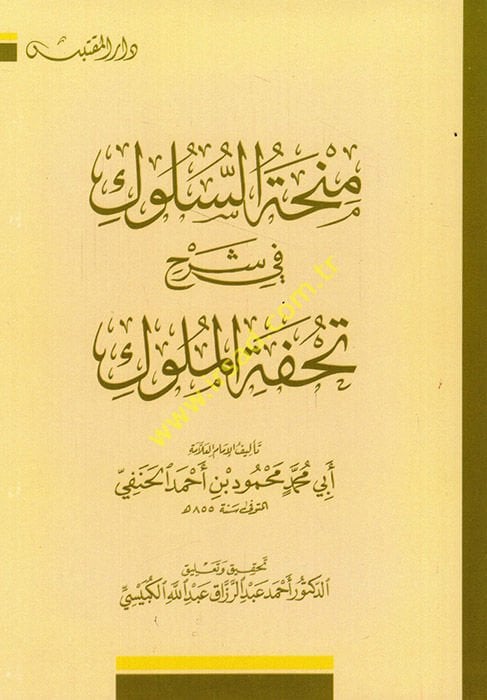 دار المقتبس
مِنْحَةُ السُّلُوكِ
فِي شَرْحِ
تُحْفَةِ المُلُوكِ
تَأليفُ الإِمَامِ العَلَّامَةِ
أَبِي مُحَمَّدٍ مَحْمُود بْنِ أَحْمَدَ الحَنَفِيِّ
المتوفى سَنَة ٨٥٥هـ
تحقيق وتعليق
الدكتور أحمد عبد الرزاق عبد الله الكُبَيْسِيّ